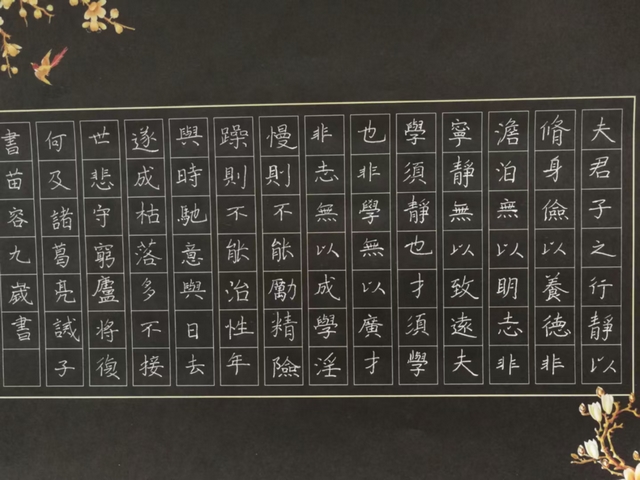 夫君子之行靜以
脩身儉以養德非
澹泊無以明志非
寧靜無以致遠夫
學須靜也才須學
也非學無以廣才
非志無以成學淫
慢則不能勵精險
躁則不能治性年
與時馳意與日去
遂成枯落多不接
世悲守窮廬將復
何及諸葛亮誡子
書苗容九歲書